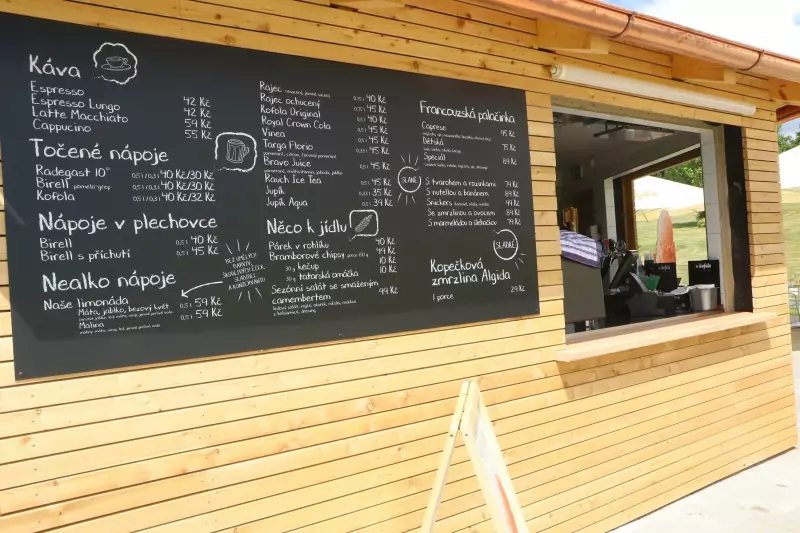 Káva
Espresso 42 Kč
Espresso Lungo 42 Kč
Latte Macchiato 59 Kč
Cappucino 55 Kč
Točené nápoje
Radegast 10° 0,5 l / 0,3 l 40 Kč/30 Kč
Birell pomelo-grep 0,5 l / 0,3 l 40 Kč/30 Kč
Kofola 0,5 l / 0,3 l 40 Kč/32 Kč
Nápoje v plechovce
Birell 0,5 l 40 Kč
Birell s příchutí 0,5 l 45 Kč
Nealko nápoje
BEZ UMĚLÝCH
BARVIV,
SLADIDEL
A KONZERVANTŮ
Naše limonáda 0,5 l 59 Kč
Máta, jablko, bezový květ 0,5 l 59 Kč
Malina
Rajec neperlivý, jemně perlivý 40 Kč
Rajec ochucený 40 Kč
Kofola Original 45 Kč
Royal Crown Cola 45 Kč
Vinea 45 Kč
Targa Florio
Bravo Juice 45 Kč
Rauch Ice Tea 45 Kč
Jupík 35 Kč
Jupík Aqua 39 Kč
Něco k jídlu
Párek v rohlíku 40 Kč
Bramborové chipsy 49 Kč
30 g kečup 10 Kč
30 g tatarská omáčka 10 Kč
Sezónní salát se smaženým
camembertem 99 Kč
Francouzská palačinka
Caprese 95 Kč
Dětská 75 Kč
Speciál 89 Kč
SLANÉ
S tvarohem a rozinkami 79 Kč
S nutellou a banánem 89 Kč
Snickers 99 Kč
Se zmrzlinou a ovocem 89 Kč
S marmeládou a šlehačkou 79 Kč
SLADKÉ
Kopečková
zmrzlina Algida
1 porce 29 Kč
kofola